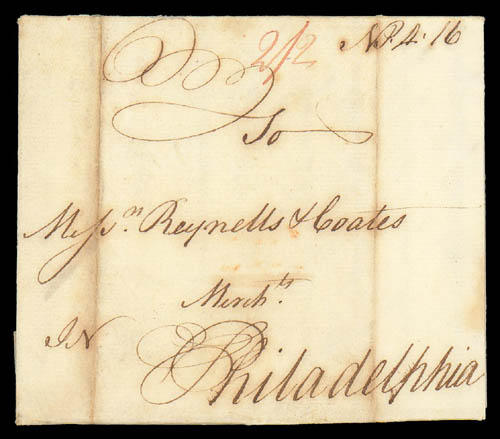 2/2 NP. 4: 16
To
Messrs. Reynells & Coates
Merchts.
IN
Philadelphia